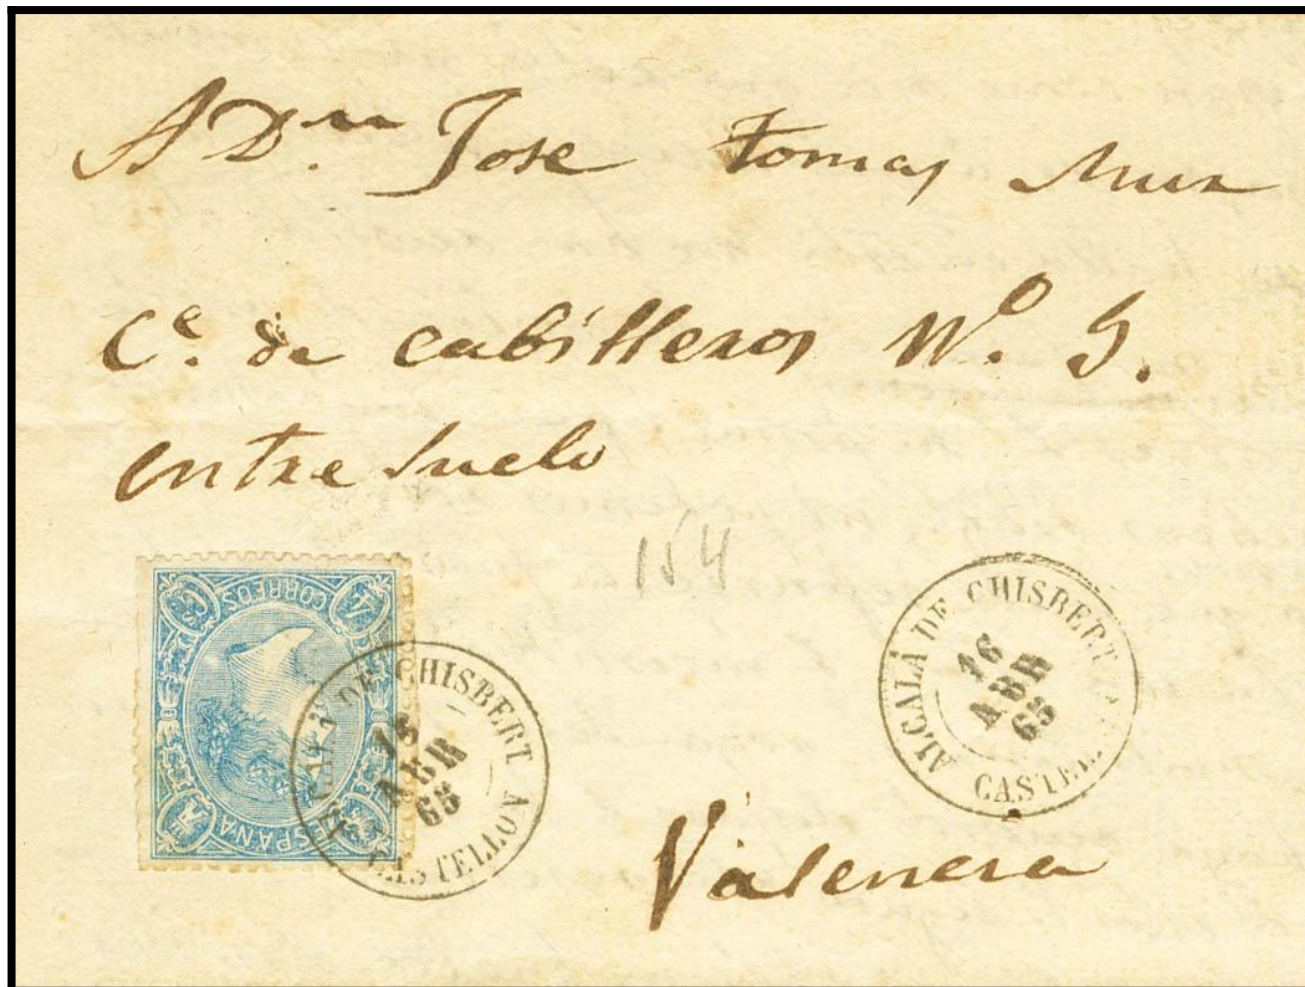 A Dn. Jose tomas Mur
Ce. de cabilleros No. 5.
entre suelo
154
4 CORREOS CS
ESPAÑA
DE CHISBERT
16
ABR
65
CASTELLON
ALCALÁ DE CHISBERT
16
ABR
65
CASTEL
Valencia